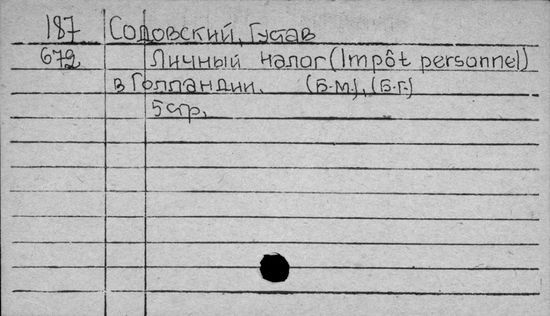 187 Содовский, Густав
672 Личный налог (Impôt personnel)
в Голландии. (Б.м.), (Б.г.)
5 стр.